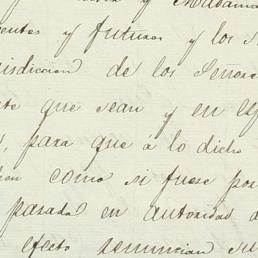 y Mabama
entes y futuros y los s
isdiccion de los Señore
te que sean y en esp
s, para que á lo dicho
hen como si fuese por
pasada en autoridad d
efecto renuncian su